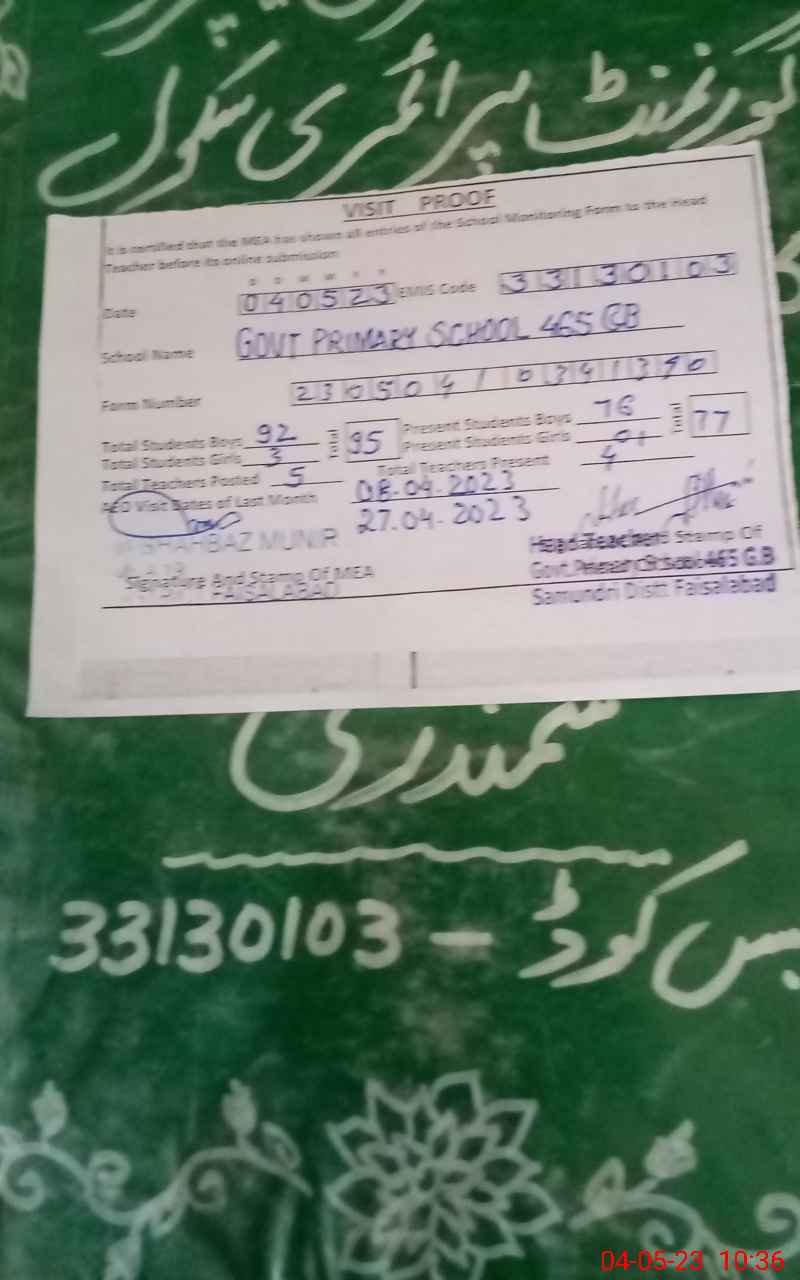 گورنمنٹ پرائمری سکول
VISIT PROOF
It is certified that the MEA has shown all entries of the School Monitoring Form to the Head
Teacher before its online submission
D D M M Y Y
Date 040523 EMIS Code 33130103
School Name GOVT PRIMARY SCHOOL 465 GB
Form Number 230504/
Total Students Boys 92 Total 95 Present Students Boys 76 Total 77
Total Students Girls 3 Present Students Girls 01
Total Teachers Posted 5 Total Teachers Present 4
AEO Visit Dates of Last Month 08-04-2023
27-04-2023
SHAHBAZ MUNIR
Signature And Stamp Of MEA
FAISALABAD
Head Teacher Stamp Of
Govt. 465 G.B
Samundri Distt Faisalabad
سمندری
کوڈ - 33130103
04-05-23 10:36